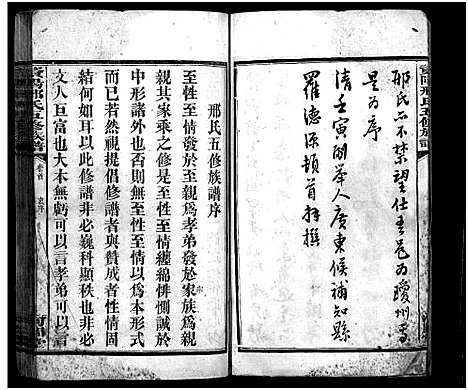 邢氏不禁望仕
是為序
清壬寅開舉人廣東候補知縣
羅德源頓首拜撰
邢氏五修族譜序
至性至情發於至親為孝弟發於家族為親
親其家乘之修非至性至情纏綿悱惻誠於
中形諸外也否則無至性至情以為本形式
而已若然視提倡修譜者與贊成者性情固
結何如耳以此修譜非必巍科顯秩也非必
文人巨富也大本無虧可以言孝弟可以言
邢氏五修族譜
卷首